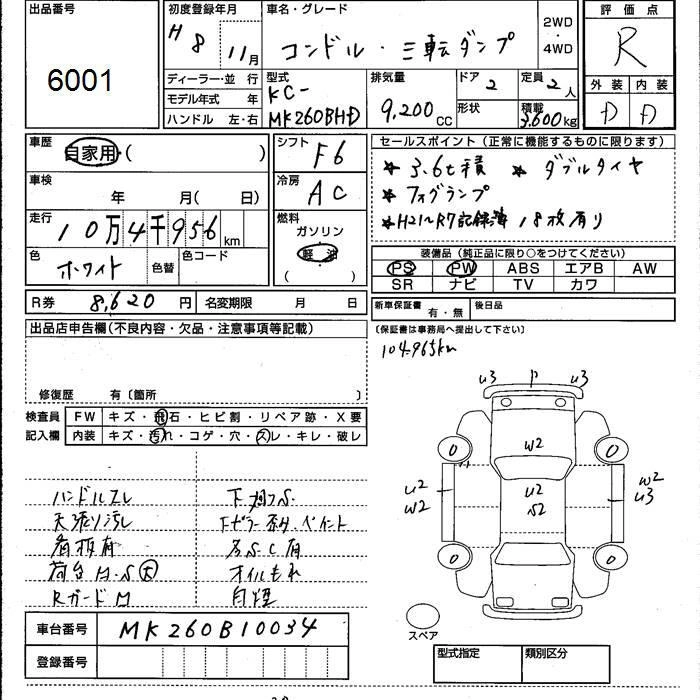 出品番号
6001
初度登録年月
H8 11月
車名・グレード
コンドル・三転ダンプ
2WD
・
4WD
評価点
R
ディーラー・並 行
モデル年式 年
ハンドル 左・右
型式
KC-
MK260BHD
排気量
9,200cc
ドア 2
形状
定員 2人
積載
3,600kg
外装
内装
D
D
車歴
自家用・( )
車検
年 月( 日)
走行
10万4千956km
色
ホワイト
色替
色コード
シフト
F6
冷房
AC
燃料
ガソリン
軽油
( )
セールスポイント(正常に機能するものに限ります)
* 3.6t積 * ダブルタイヤ
* フォグランプ
* H21~R7記録簿 18枚有り
装備品(純正品に限り○をつけてください)
PS PW ABS エアB AW
SR ナビ TV カワ
R券 8,620円
名変期限 月 日
新車保証書
有・無
後日品
(保証書は事務局へ提出して下さい)
出品店申告欄(不良内容・欠品・注意事項等記載)
104,965km
修復歴 有〔箇所 〕
検査員
記入欄
FW キズ・飛石・ヒビ割・リペア跡・X要
内装 キズ・汚れ・コゲ・穴・スレ・キレ・破レ
u3 P u3
0 W2 0
u2
W2
u2
S2
W2
u3
0 0
ハンドルスレ
天張り汚レ
看板有
荷台M・S大
RガードM
下廻りS
オイルもれ
自煙
スペア
車台番号 MK260B10034
登録番号
型式指定
類別区分